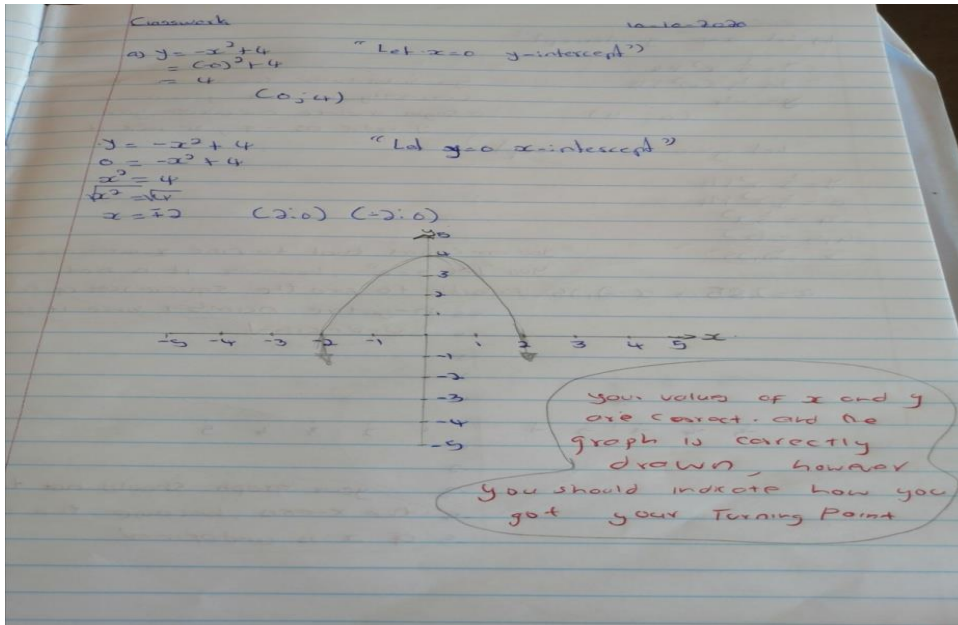 Classwork 10-10-2020
a) y = -x² + 4 "Let x=0 y-intercept")
= (0)² + 4
= 4
(0;4)
y = -x² + 4 "Let y=0 x-intercept"
0 = -x² + 4
x² = 4
√x² = √4
x = ∓2 (2;0) (-2;0)
y 5
4
3
2
1
-5 -4 -3 -2 -1 1 2 3 4 5 x
-1
-2
-3
-4
-5
your values of x and y
are correct. and the
graph is correctly
drawn, however
you should indicate how you
got your Turning Point